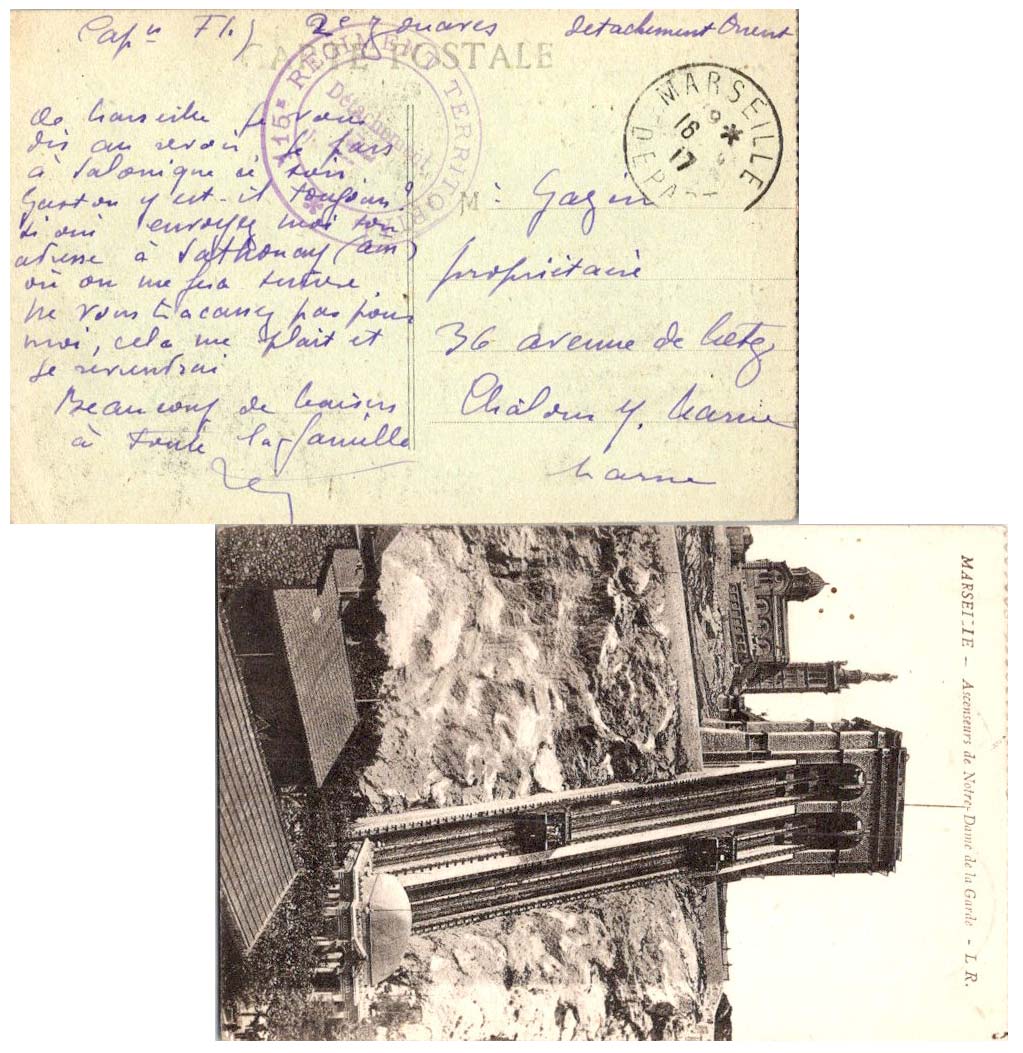 2e Zouaves détachement Orient
CARTE POSTALE
115e RÉGIMENT TERRITORIAL
Détachement
MARSEILLE
DEPART
16
17
de Marseille je vous
dis au revoir, je pars
à Salonique ce soir.
Gaston y est-il toujours?
si oui envoyez moi son
adresse à Sathonay (ain)
où on me fera suivre.
Ne vous tracassez pas pour
moi, cela me plait et
je reviendrai
Beaucoup de baisers
à toute la famille
M : Gazin
propriétaire
36 avenue de Metz
Châlons s/ Marne
Marne
MARSEILLE - Ascenseurs de Notre-Dame de la Garde - L. R.